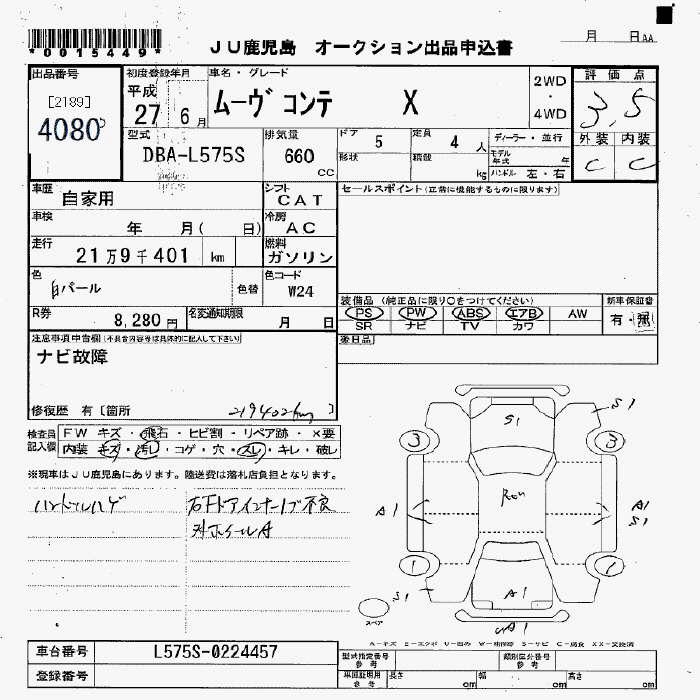 *0015449*
JU鹿児島 オークション出品申込書
月 日AA
出品番号
[2189]
4080
初度登録年月
平成
27 6月
車名・グレード
ムーヴ コンテ X
2WD
・
4WD
評価点
3,5
外装 内装
C C
型式
DBA-L575S
排気量
660
CC
ドア 5
形状
定員 4 人
積載 kg
ディーラー・並行
モデル年式 年
ハンドル 左・右
車歴
自家用
シフト
CAT
車検
年 月( 日)
冷房
AC
走行
21万9千401 km
燃料
ガソリン
色
白パール
色替
色コード
W24
R券
8,280円
名変通知期限
月 日
セールスポイント(正常に機能するものに限ります)
装備品 (純正品に限り○をつけてください)
PS PW ABS エアB AW
SR ナビ TV カワ
新車保証書
有・無
後日品
注意事項申告欄(不具合内容等は具体的に記入して下さい)
ナビ故障
修復歴 有〔箇所 219402km 〕
検査員記入欄
FW キズ・飛石・ヒビ割・リペア跡・×要
内装 キズ・汚レ・コゲ・穴・スレ・キレ・破レ
※現車はJU鹿児島にあります。陸送費は落札店負担となります。
ハンドルハゲ
右Fドアインナーノブ不良
外ホイールA
S1
S1
3 3
A1
Rou
A1
S1
1 1
S1
A1
A1
スペア
A-キズ E-エクボ U-凹み W-補修跡 S-サビ C-腐食 XX-交換済
車台番号
L575S-0224457
登録番号
型式指定番号
参考
類別区分番号
参考
車図証明用
参考
長さ cm
幅 cm
高さ cm